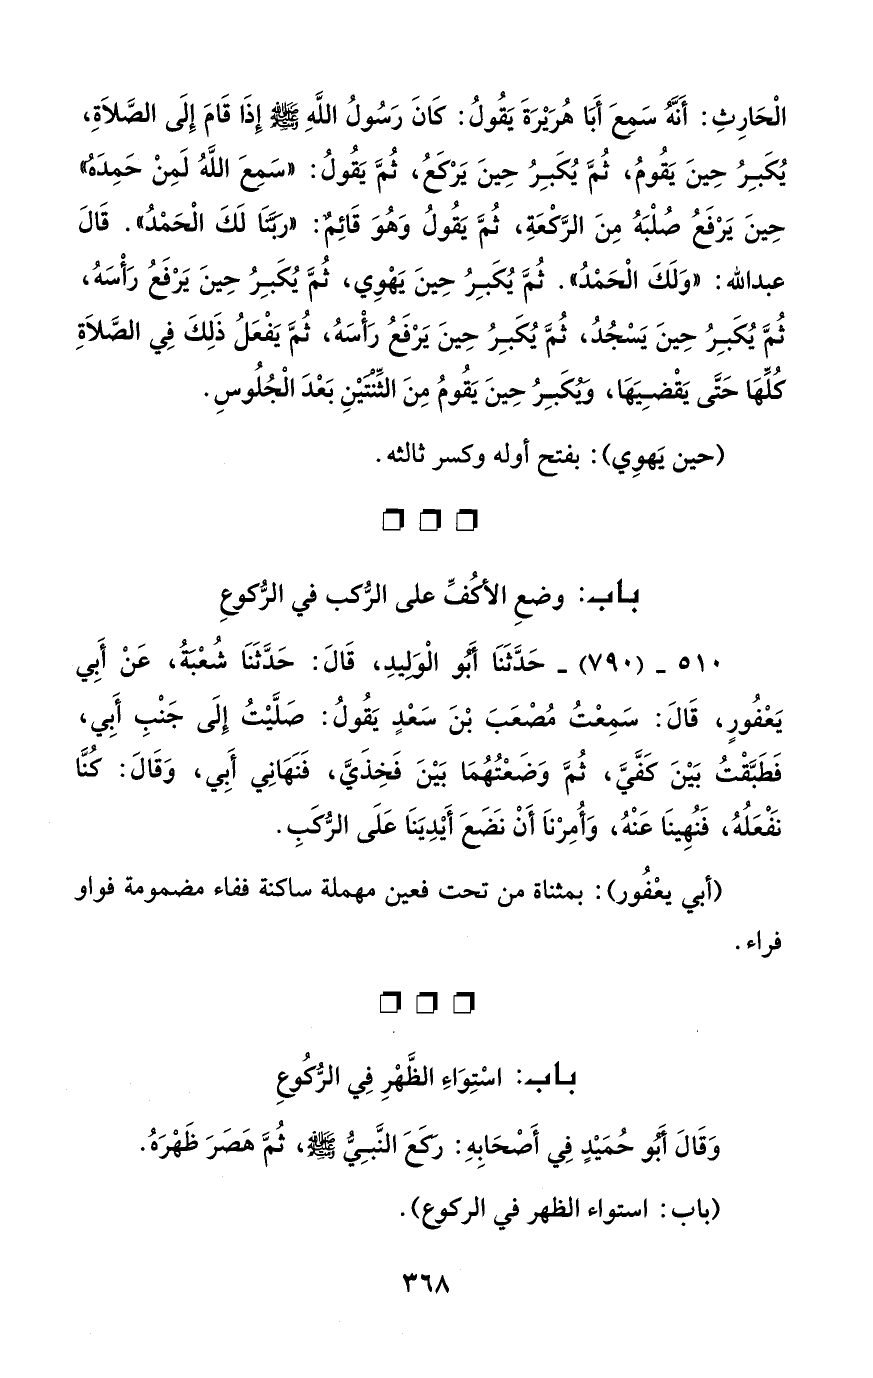 الْحَارِثِ: أَنَّهُ سَمِعَ أَبَا هُرَيْرَةَ يَقُولُ: كَانَ رَسُولُ اللَّهِ ﷺ إِذَا قَامَ إِلَى الصَّلاَةِ،
يُكَبِرُ حِينَ يَقُومُ، ثُمَّ يُكَبِرُ حِينَ يَرْكَعُ، ثُمَّ يَقُولُ: «سَمِعَ اللَّهُ لَمِنْ حَمِدَهُ»
حِينَ يَرْفَعُ صُلْبَهُ مِنَ الرَّكْعَةِ، ثُمَّ يَقُولُ وَهُوَ قَائِمٌ: «رَبَّنَا لَكَ الْحَمْدُ». قَالَ
عبدالله: «وَلَكَ الْحَمْدُ». ثُمَّ يُكَبِرُ حِينَ يَهْوِي، ثُمَّ يُكَبِرُ حِينَ يَرْفَعُ رَأْسَهُ،
ثُمَّ يُكَبِرُ حِينَ يَسْجُدُ، ثُمَّ يُكَبِرُ حِينَ يَرْفَعُ رَأْسَهُ، ثُمَّ يَفْعَلُ ذَلِكَ فِي الصَّلاَةِ
كُلِّهَا حَتَّى يَقْضِيَهَا، وَيُكَبِرُ حِينَ يَقُومُ مِنَ الثِّنْتَيْنِ بَعْدَ الْجُلُوسِ.
(حين يَهوِي): بفتح أوله وكسر ثالثه.
باب: وضعِ الأكُفِّ على الرُّكب في الرُّكوعِ
٥١٠ ـ (٧٩٠) ـ حَدَّثَنَا أَبُو الْوَلِيدِ، قَالَ: حَدَّثَنَا شُعْبَةُ، عَنْ أَبِي
يَعْفُورٍ، قَالَ: سَمِعْتُ مُصْعَبَ بْنَ سَعْدٍ يَقُولُ: صَلَّيْتُ إِلَى جَنْبِ أَبِي،
فَطَبَّقْتُ بَيْنَ كَفَّيَّ، ثُمَّ وَضَعْتُهُمَا بَيْنَ فَخِذَيَّ، فَنَهَانِي أَبِي، وَقَالَ: كُنَّا
نَفْعَلُهُ، فَنُهِينَا عَنْهُ، وَأُمِرْنَا أَنْ نَضَعَ أَيْدِيَنَا عَلَى الرُّكَبِ.
(أبي يعْفُور): بمثناة من تحت فعين مهملة ساكنة ففاء مضمومة فواو
فراء.
باب: اسْتِوَاءِ الظَّهْرِ فِي الرُّكُوعِ
وَقَالَ أَبُو حُمَيْدٍ فِي أَصْحَابِهِ: رَكَعَ النَّبِيُّ ﷺ، ثُمَّ هَصَرَ ظَهْرَهُ.
(باب: استواء الظهر في الركوع).
٣٦٨